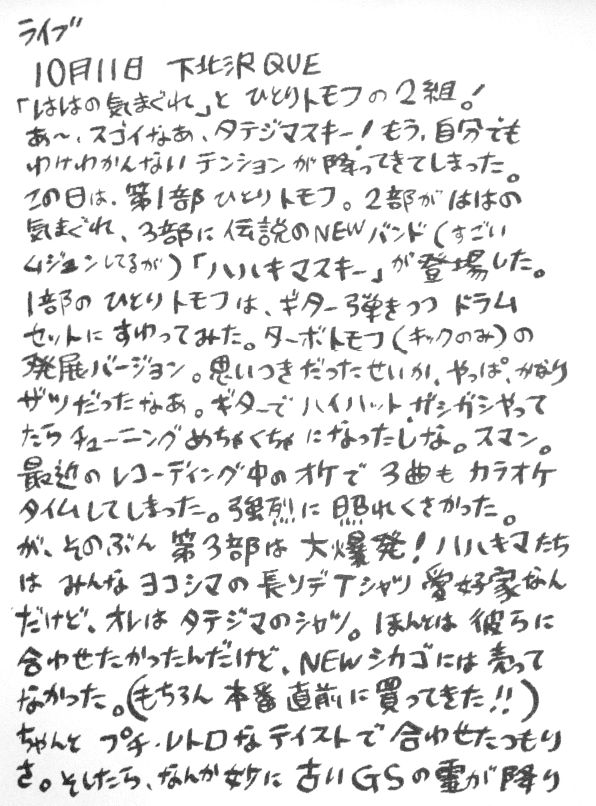 ライブ
10月11日 下北沢QUE
「ははの気まぐれ」と ひとりトモフの2組!
あ〜、スゴイなあ、タテジマスキー! もう、自分でも
わけわかんない テンションが 降ってきてしまった。
この日は、第1部 ひとりトモフ。2部が ははの
気まぐれ、3部に 伝説のNEWバンド(すごい
ムジュンしてるが)「ハルキマスキー」が登場した。
1部の ひとりトモフは、ギター弾きつつ ドラム
セットに すわってみた。ターボトモフ(キックのみ)の
発展バージョン。思いつきだったせいか、やっぱ、かなり
ザツだったなあ。ギターで ハイハット ガシガシやって
たら チューニング めちゃくちゃ になったしな。スマン。
最近の レコーディング中の オケで 3曲も カラオケ
タイムしてしまった。強烈に 照れくさかった。
が、そのぶん 第3部は 大爆発! ハルキマたち
は みんな ヨコシマの 長ソデTシャツ 愛好家なん
だけど、オレは タテジマのシャツ。ほんとは 彼らに
合わせたかったんだけど、NEWシカゴには 売って
なかった。(もちろん 本番直前に 買ってきた!!)
ちゃんと プチ・レトロな テイストで 合わせたつもり
さ。そしたら、なんか妙に 古いGSの霊が 降り